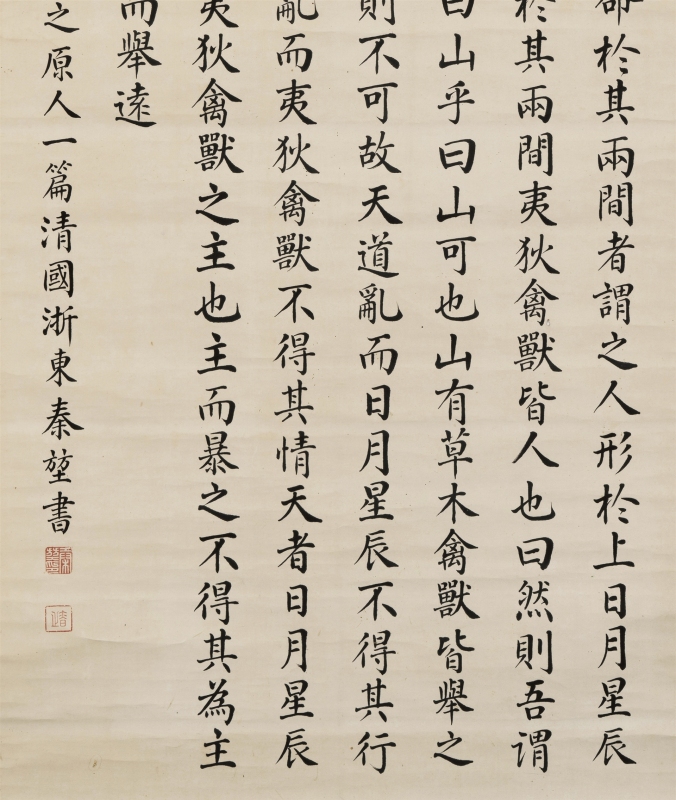 命於其兩間者謂之人形於上日月星辰
於其兩間夷狄禽獸皆人也曰然則吾謂
曰山乎曰山可也山有草木禽獸皆舉之
則不可故天道亂而日月星辰不得其行
亂而夷狄禽獸不得其情天者日月星辰
夷狄禽獸之主也主而暴之不得其為主
而舉遠
之原人一篇清國浙東秦堃書